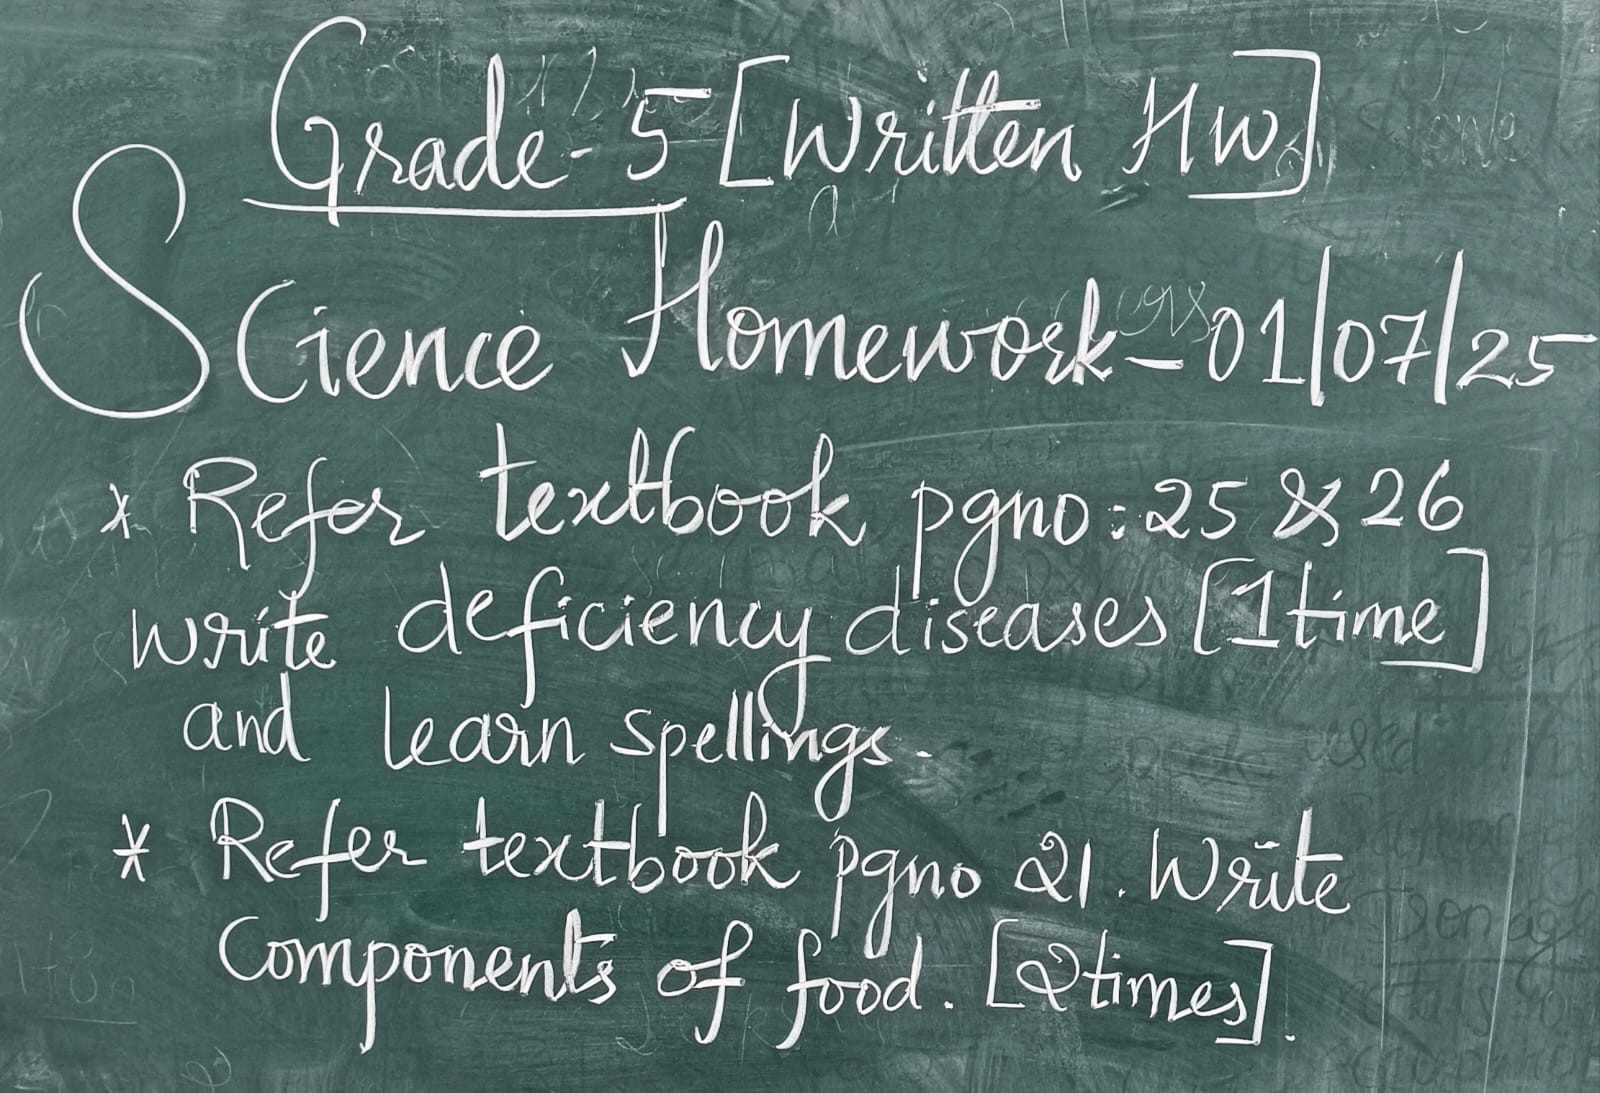 Grade-5 [Written HW]
Science Homework-01/07/25
* Refer textbook pgno:25 & 26
write deficiency diseases [1time]
and learn spellings.
* Refer textbook pgno 21. Write
Components of food. [2times].